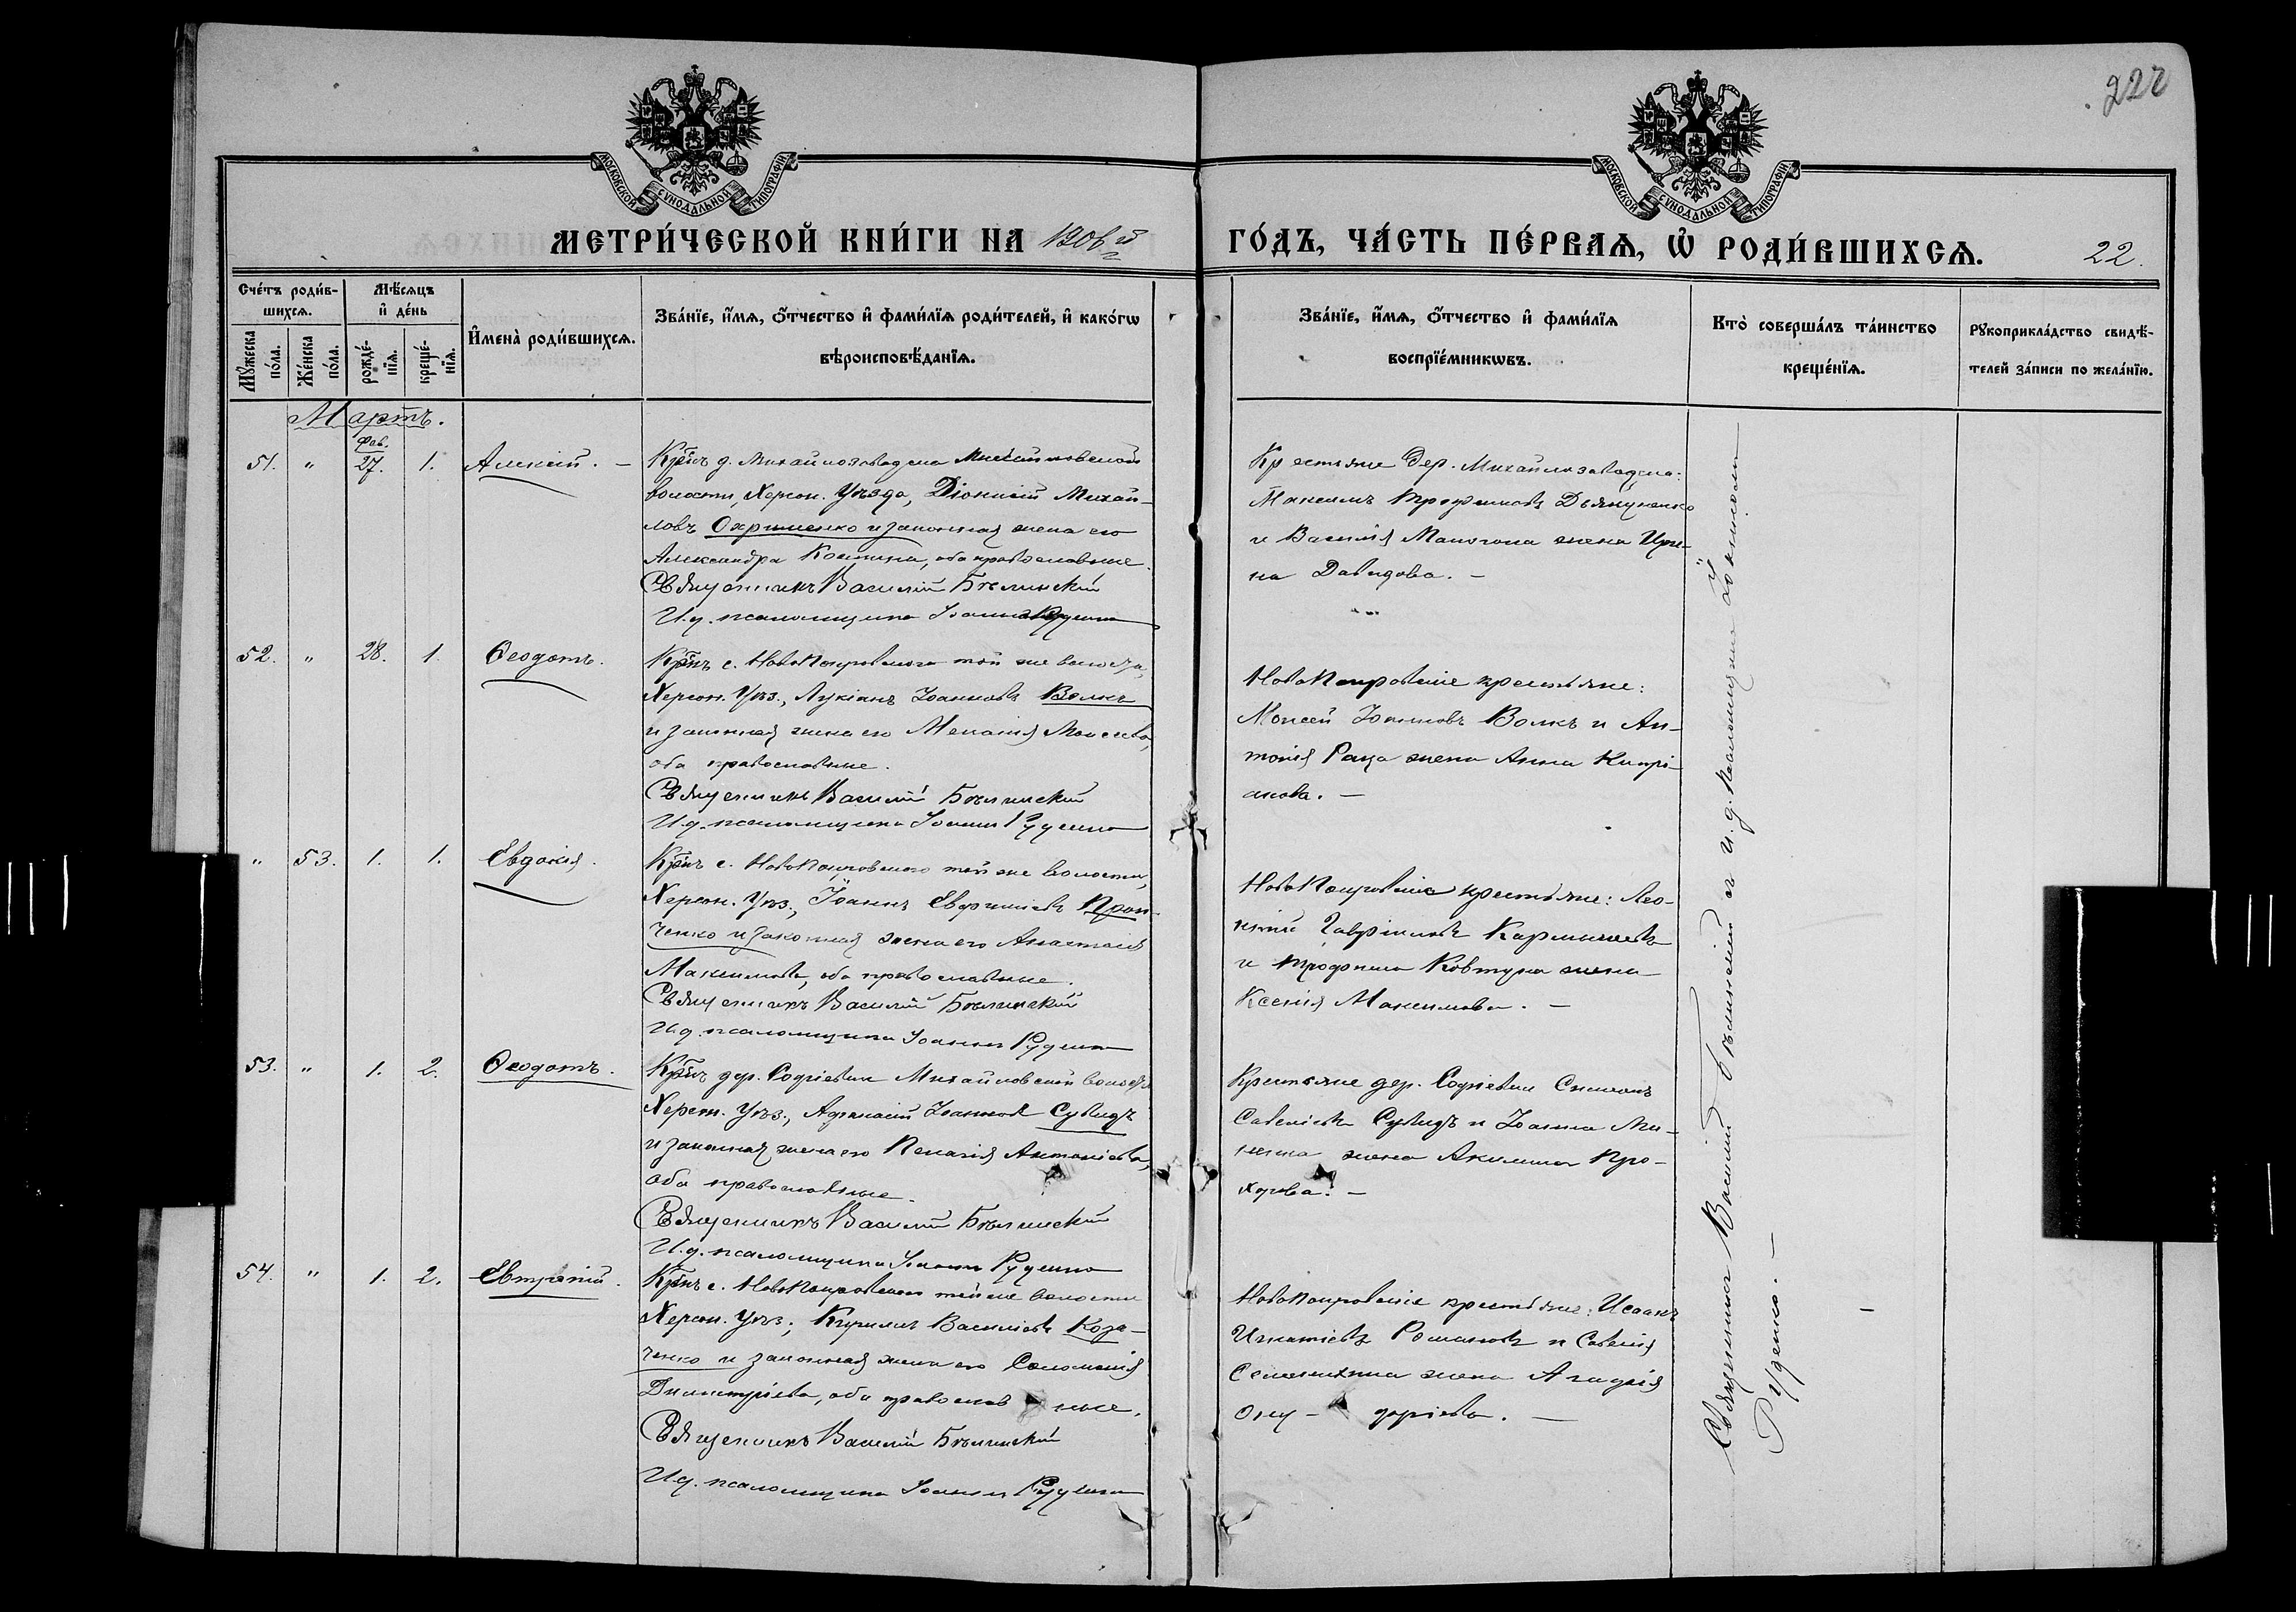 222
МОСКОВСКОЙ СѴНОДАЛЬНОЙ ТИПОГРАФІИ
МОСКОВСКОЙ СѴНОДАЛЬНОЙ ТИПОГРАФІИ
МЕТРИ́ЧЕСКОЙ КНИ́ГИ НА 1906 й
ГО́ДЪ, ЧА́СТЬ ПЕ́РВАѦ, Ѡ РОДИ́ВШИХСѦ.
22.
Сче́тъ роди́в-
шихсѧ.
Мѣ́сѧцъ
и҆ де́нь
Мꙋ́жеска
по́ла.
Же́нска
по́ла.
рожде́-
нїѧ.
креще́-
нїѧ.
И҆мена̀ роди́вшихсѧ.
Зва́нїе, и҆́мѧ, ѻ҆́тчество и҆ фами́лїѧ роди́телей, и҆ како́гѡ
вѣроисповѣ́данїѧ.
Зва́нїе, и҆́мѧ, ѻ҆́тчество и҆ фами́лїѧ
воспрїе́мникѡвъ.
Кто̀ соверша́лъ та́инство
креще́нїѧ.
Рꙋкоприкла́дство свидѣ́-
телей за́писи по жела́нїю.
Мартъ.
51. " Фев. 27. 1. Алексій. –
Кр-нъ д. Михайлозаводска Михайловской
волости, Херсон. Уѣзда, Діонисій Михай-
ловъ Охрименко и законная жена его
Александра Космина, оба православные.
Священникъ Василій Бѣлинскій
И.д. псаломщика Іоаннъ Руденко
Крестьяне дер. Михайлозаводска:
Максимъ Трофимовъ Демяненко
и Василія жена Ири-
на Давидова. –
52. " 28. 1. Ѳеодотъ.
Кр-нъ с. Новопокровскаго той же волости,
Херсон. Уѣз., Лукіанъ Іоанновъ Волкъ
и законная жена его Меланія Моисеева,
оба православные.
Священникъ Василій Бѣлинскій
И.д. псаломщика Іоаннъ Руденко
Новопокровскіе крестьяне:
Моисей Іоанновъ Волкъ и Ан-
тонія Раца жена Анна Кипрі-
анова. –
" 53. 1. 1. Евдокія.
Кр-нъ с. Новопокровскаго той же волости,
Херсон. Уѣз., Іоаннъ Евфиміевъ Прон-
ченко и законная жена его Анастасія
Максимова, оба православные.
Священникъ Василій Бѣлинскій
И.д. псаломщика Іоаннъ Руденко
Новопокровскіе крестьяне: Лео-
нтій Гавріиловъ
и Трофима Ковтуна жена
Ксенія Максимова. –
53. " 1. 2. Ѳеодотъ.
Кр-нъ дер. Софіевки Михайловской волости
Херсон. Уѣз., Афанасій Іоанновъ Сувидъ
и законная жена его Пелагія Антоніева,
оба православные.
Священникъ Василій Бѣлинскій
И.д. псаломщика Іоаннъ Руденко
Крестьяне дер. Софіевки Симеонъ
Савеліевъ Сувидъ и Іоанна Ми-
жена Акилина Про-
хорова. –
54. " 1. 2. Евтропій.
Кр-нъ с. Новопокровскаго той же волости
Херсон. Уѣз., Кириллъ Василіевъ Коза-
ченко и законная жена его Соломонія
Димитріева, оба православ ные.
Священникъ Василій Бѣлинскій
И.д. псаломщика Іоаннъ Руденко
Новопокровскіе крестьяне: Исаакъ
Игнатіевъ Романовъ и Савелія
жена Агафія
Ону- фріева. –
Священникъ Василій Бѣлинскій съ и. д. псаломщика Іоанномъ
Руденко. –